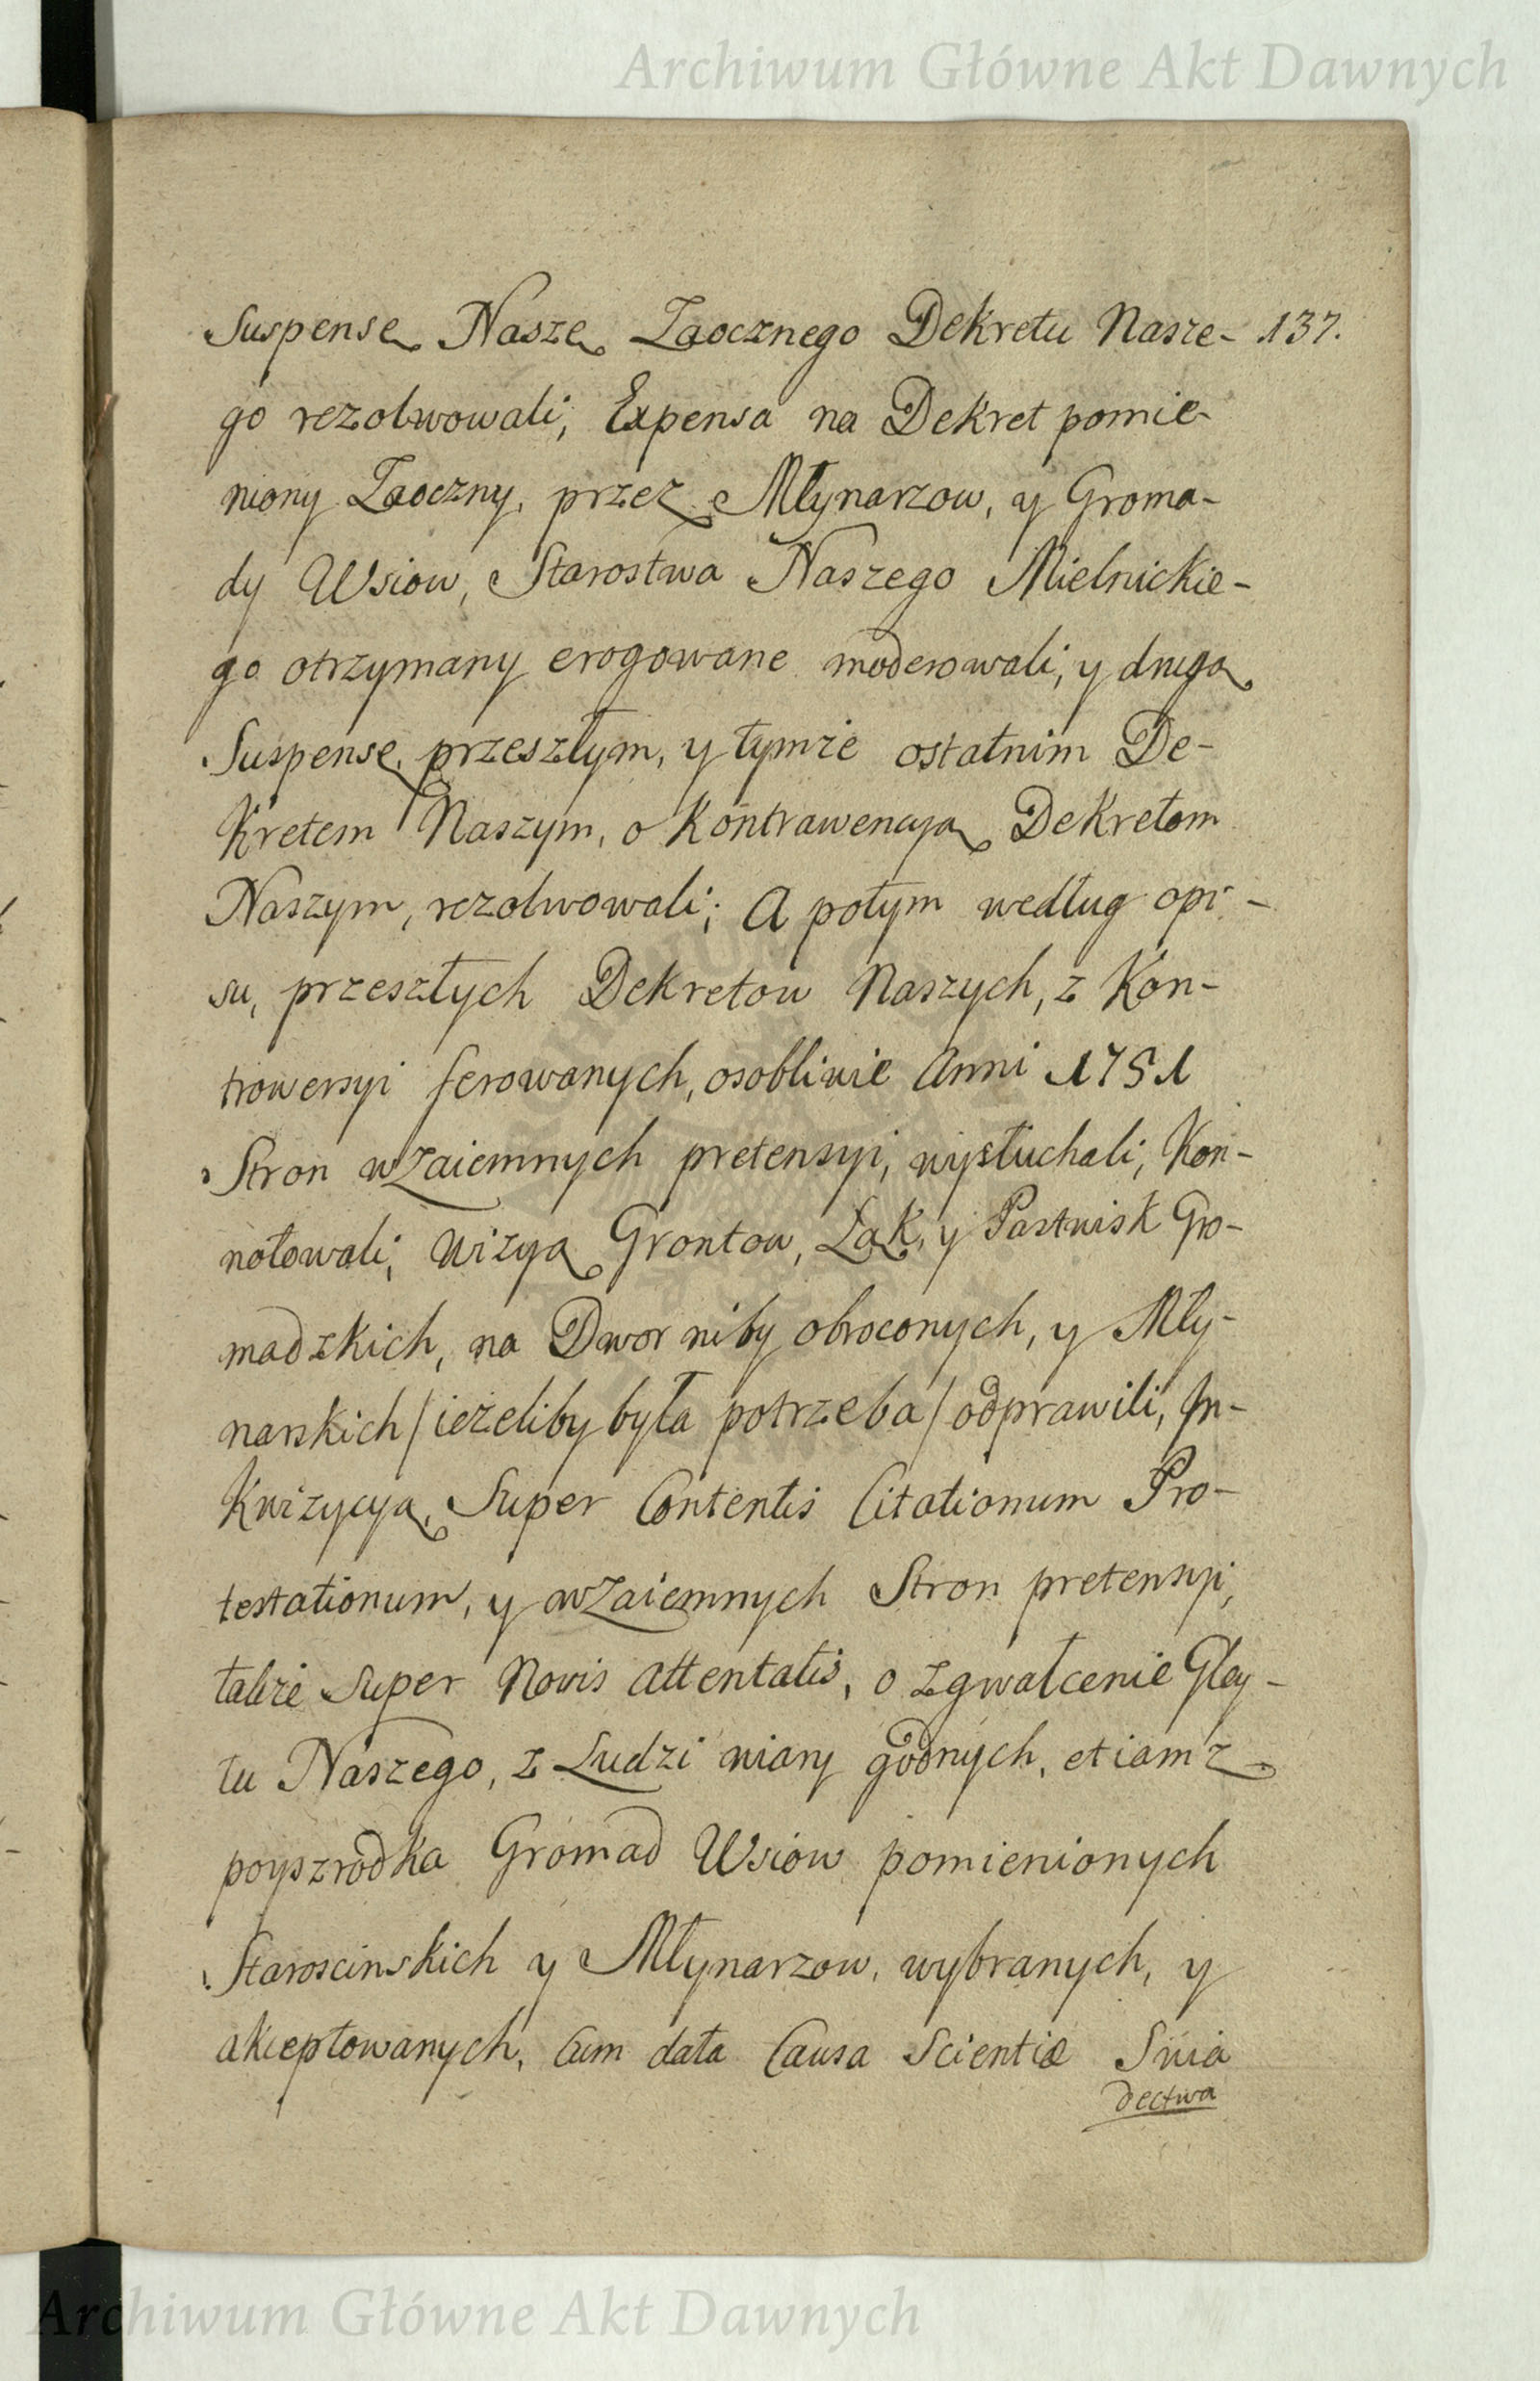 Archiwum Główne Akt Dawnych
Suspensę Naszę Zaocznego Dekretu Nasze- 137.
go rezolwowali, Expensa na Dekret pomie-
niony Zaoczny, przez Młynarzow, y Groma-
dy Wsiow, Starostwa Naszego Mielnickie-
go otrzymany erogowane moderowali, y drugą
Suspensę, przeszłym, y tymże ostatnim De-
kretem Naszym, o kontrawencyą Dekretom
Naszym, rezolwowali; A potym według opi-
su, przeszłych Dekretow Naszych, z Kon-
trowersyi ferowanych, osobliwie Anni 1751
Stron wzaiemnych pretensyi, wysłuchali, Kon-
notowali, wizyą Grontow, Łąk, y Pastwisk Gro-
madzkich, na Dwor niby obroconych, y Mły-
narskich / ieżeliby była potrzeba / odprawili, In-
kwizycyą, Super Contentis Citationum Pro-
testationum, y wzaiemnych Stron pretensyi,
także Super Novis Attentatis, o zgwałcenie Gley-
tu Naszego, z Ludzi wiary godnych, etiam z
poyszrodka Gromad Wsiow pomienionych
Staroscinskich y Młynarzow, wybranych, y
akceptowanych, Cum data Causa Scientiæ Swia
dectwa
Archiwum Główne Akt Dawnych